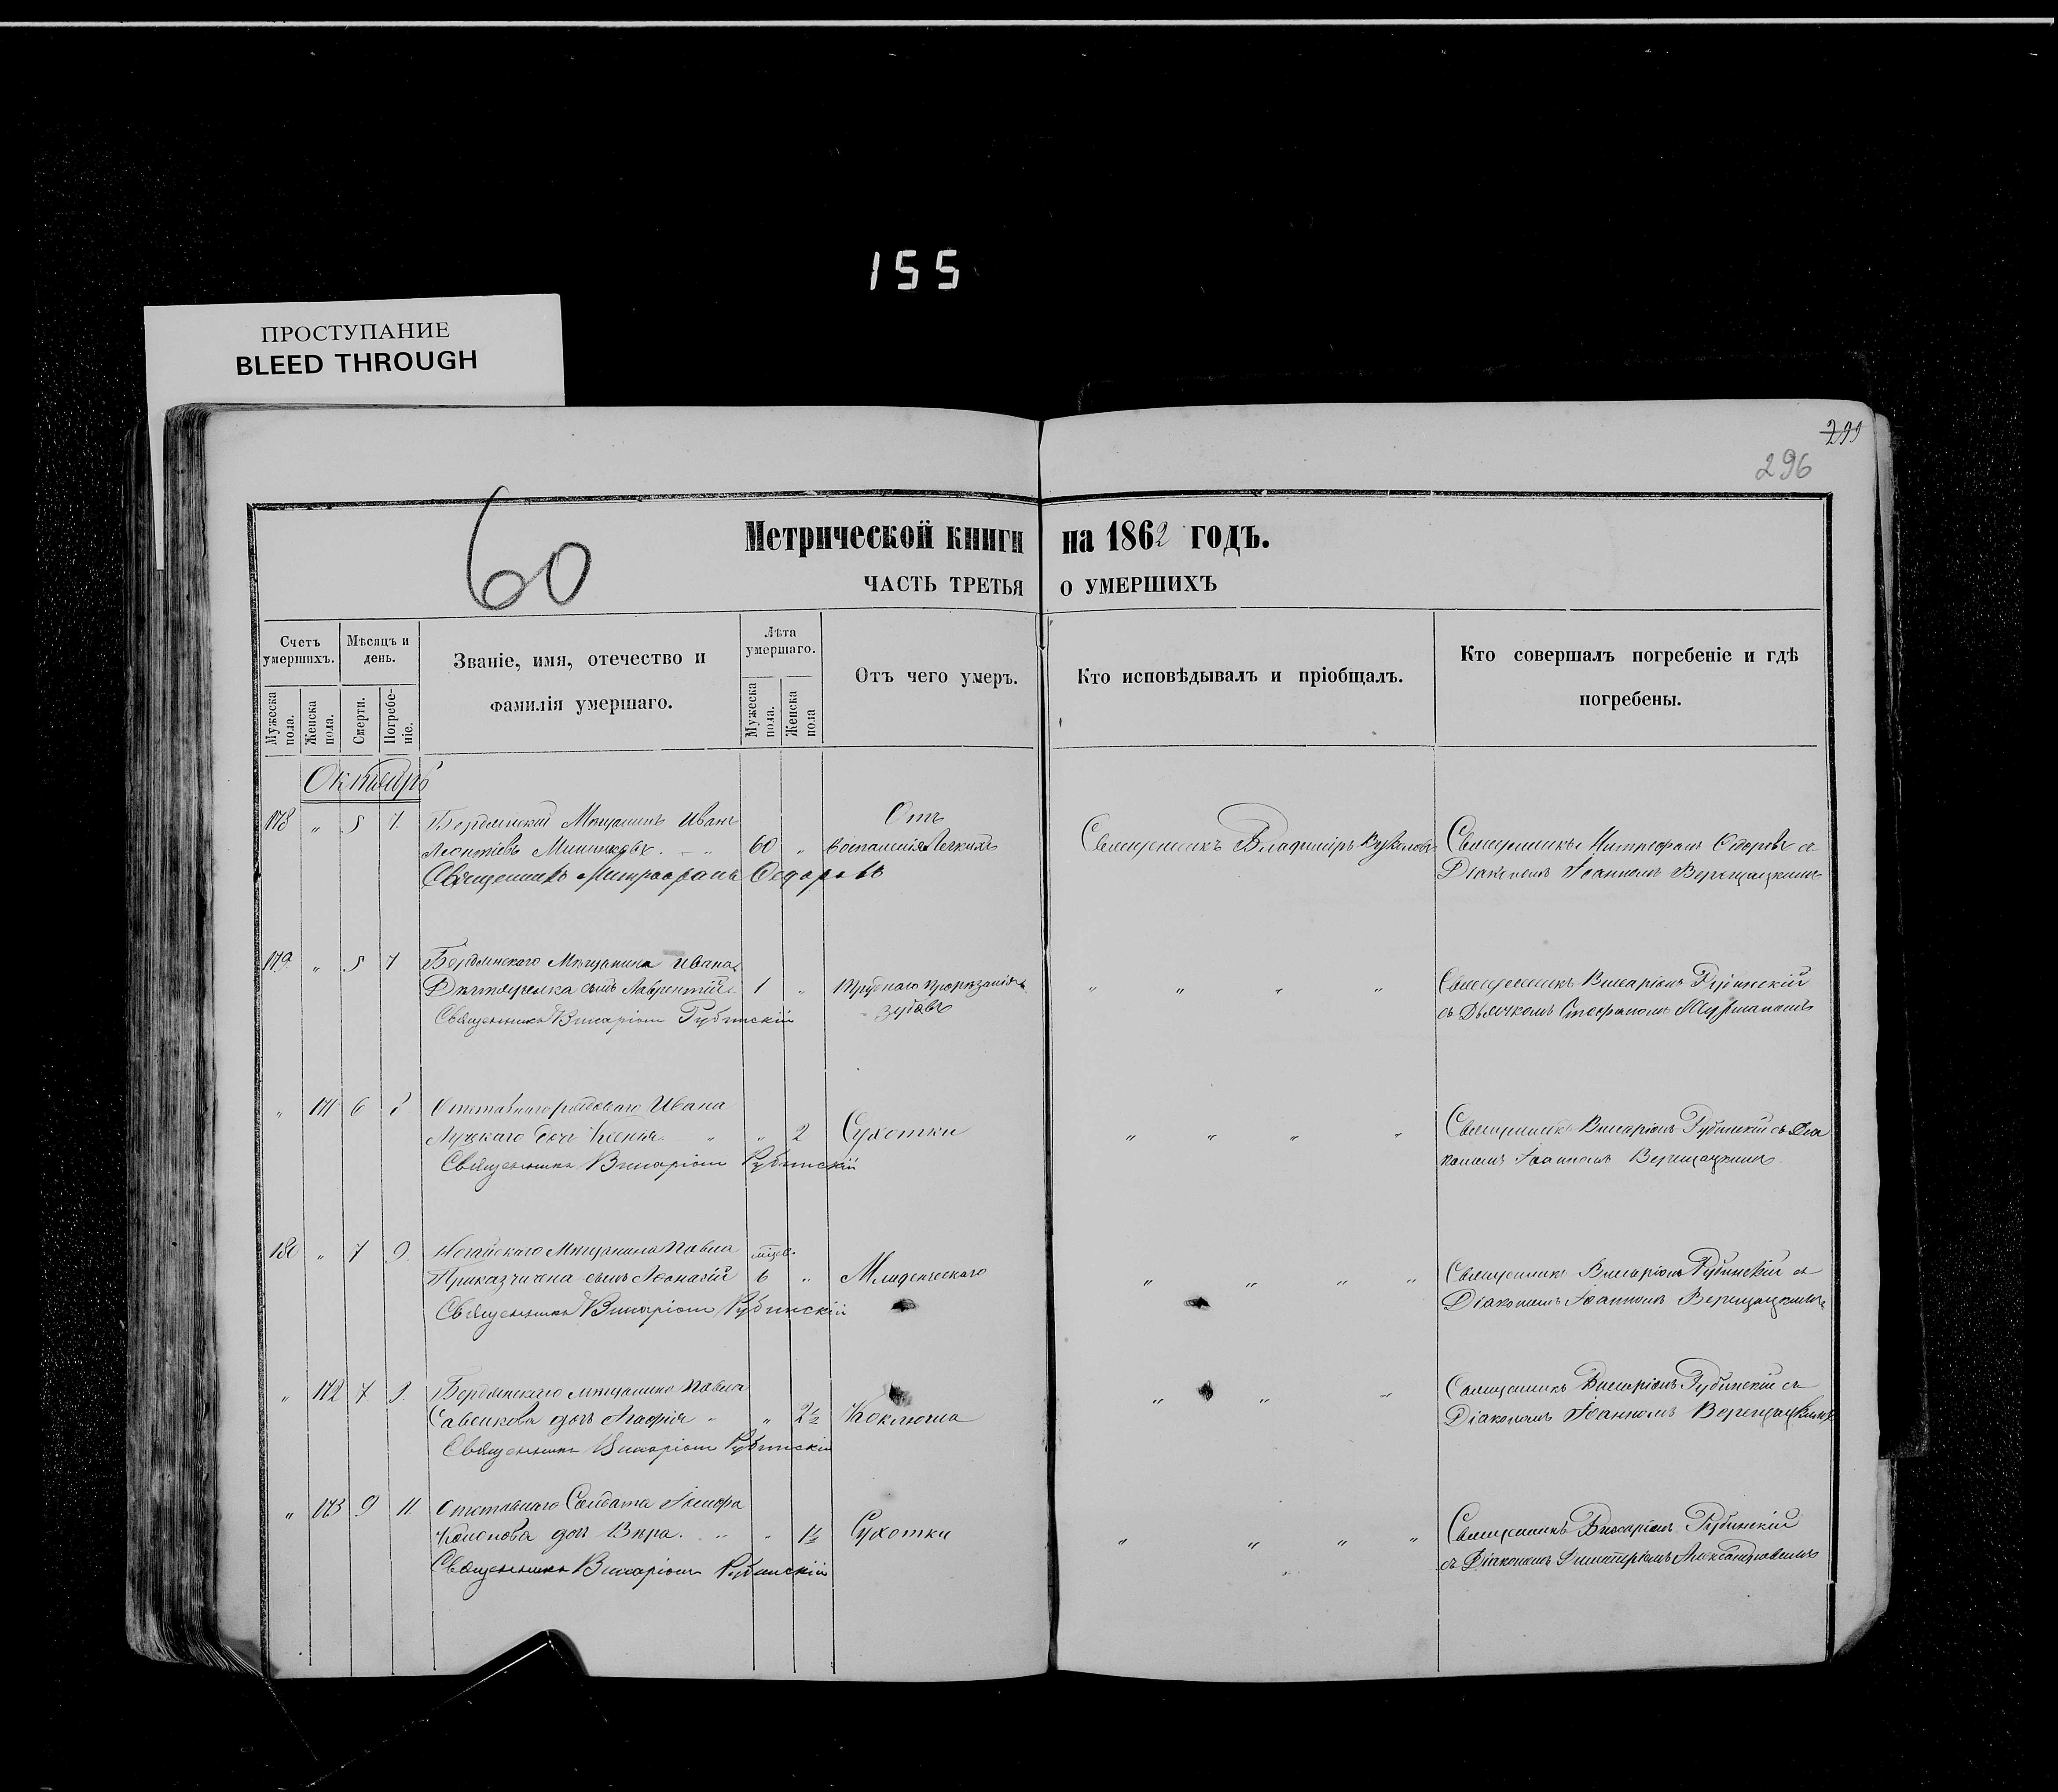 155
ПРОСТУПАНИЕ
BLEED THROUGH
299
296
60
Метрической книги на 1862 годъ.
ЧАСТЬ ТРЕТЬЯ О УМЕРШИХЪ
Счетъ умершихъ.
Мѣсяцъ и день.
Званіе, имя, отечество и фамилія умершаго.
Лѣта умершаго.
Отъ чего умеръ.
Кто исповѣдывалъ и пріобщалъ.
Кто совершалъ погребеніе и гдѣ погребены.
Мужеска пола.
Женска пола.
Смерти.
Погребеніе.
Мужеска пола.
Женска пола
Октябрь
178 " 5 7 Бердянскій Мѣщанинъ Иванъ Отъ
Леонтіевъ 60 " воспаленія Легкихъ Священникъ Владиміръ Священникъ Митрофанъ Ѳедоровъ съ
Священникъ Митрофанъ Ѳедоровъ Діакономъ Іоанномъ Верещацкимъ
179 " 5 7 Бердянскаго Мѣщанина Ивана
сынъ Лаврентій 1 " Труднаго Прорѣзанія " " " " Священникъ Виссаріонъ Рубинскій
Священникъ Виссаріонъ Рубинскій зубовъ съ Дьячкомъ Стефаномъ
" 171 6 8 Отставнаго рядоваго Ивана
Лучскаго дочь Ксенія " " 2 Сухотки " " " " Священникъ Виссаріонъ Рубинскій съ Діа
Священникъ Виссаріонъ Рубинскій кономъ Іоанномъ Верещацкимъ
180 " 7 9 Ногайскаго Мѣщанина Павла мѣсе.
сынъ Афанасій 6 " Младенческаго " " " " Священникъ Виссаріонъ Рубинскій съ
Священникъ Виссаріонъ Рубинскій Діакономъ Іоанномъ Верещацкимъ
" 172 7 9 Бердянскаго мѣщанина Павла Священникъ Виссаріонъ Рубинскій съ
Савенкова дочь Агафія " " 2½ Коклюша " " " " Діакономъ Іоанномъ Верещацкимъ
Священникъ Виссаріонъ Рубинскій
" 173 9 11 Отставнаго Солдата
Кононова дочь Вѣра " " 1½ Сухотки " " " " Священникъ Виссаріонъ Рубинскій
Священникъ Виссаріонъ Рубинскій съ Діакономъ Димитріемъ Александровымъ